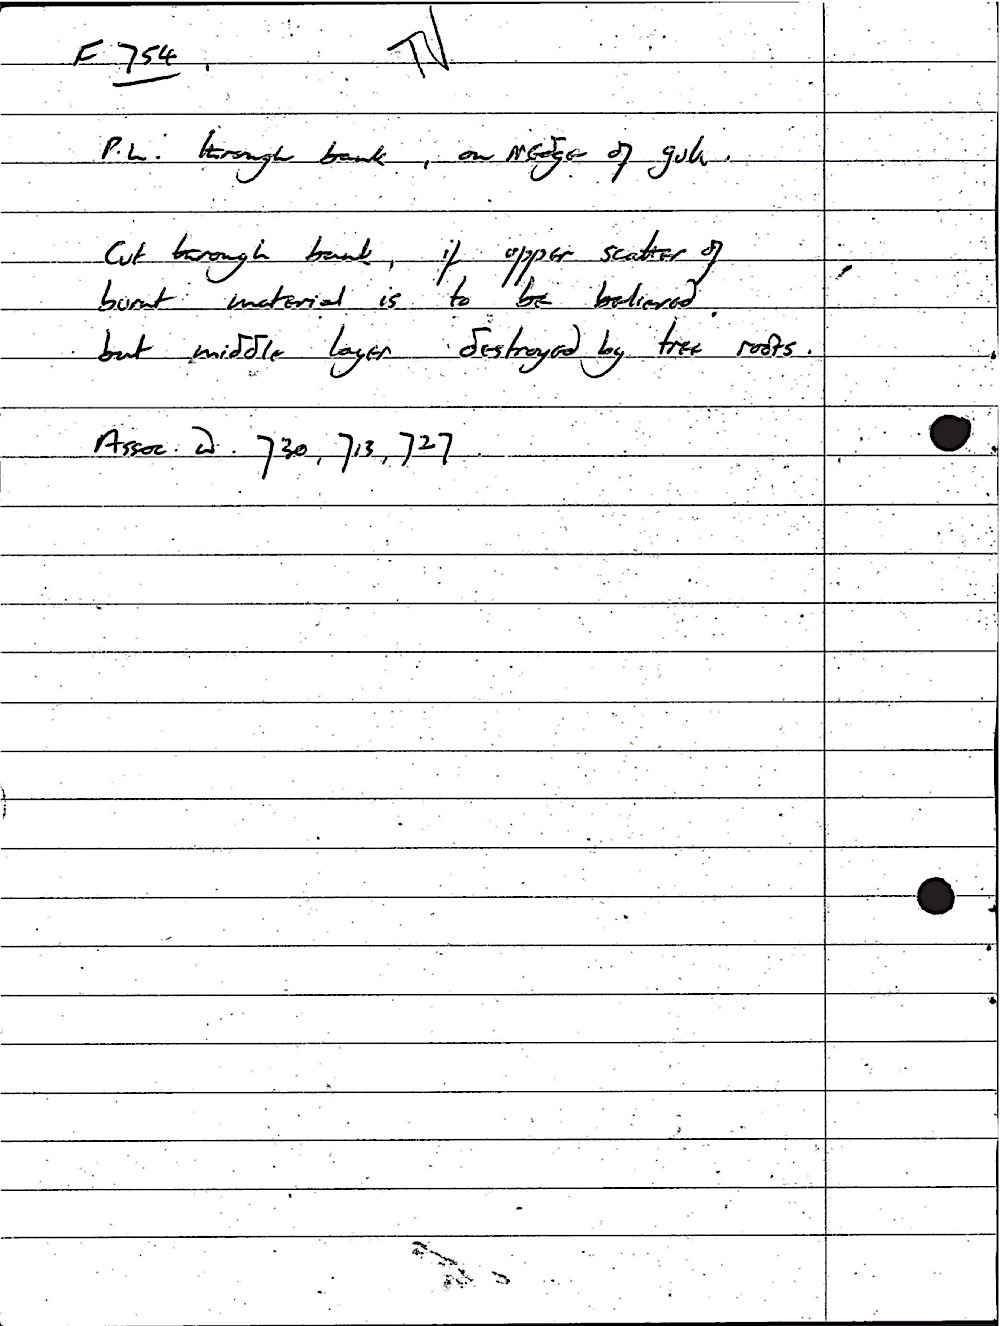 F 754. TV
P.h. through bank, on N edge of gully.
Cut through bank, if upper scatter of
burnt material is to be believed.
but middle layer destroyed by tree roots.
Assoc. w. 730, 713, 727